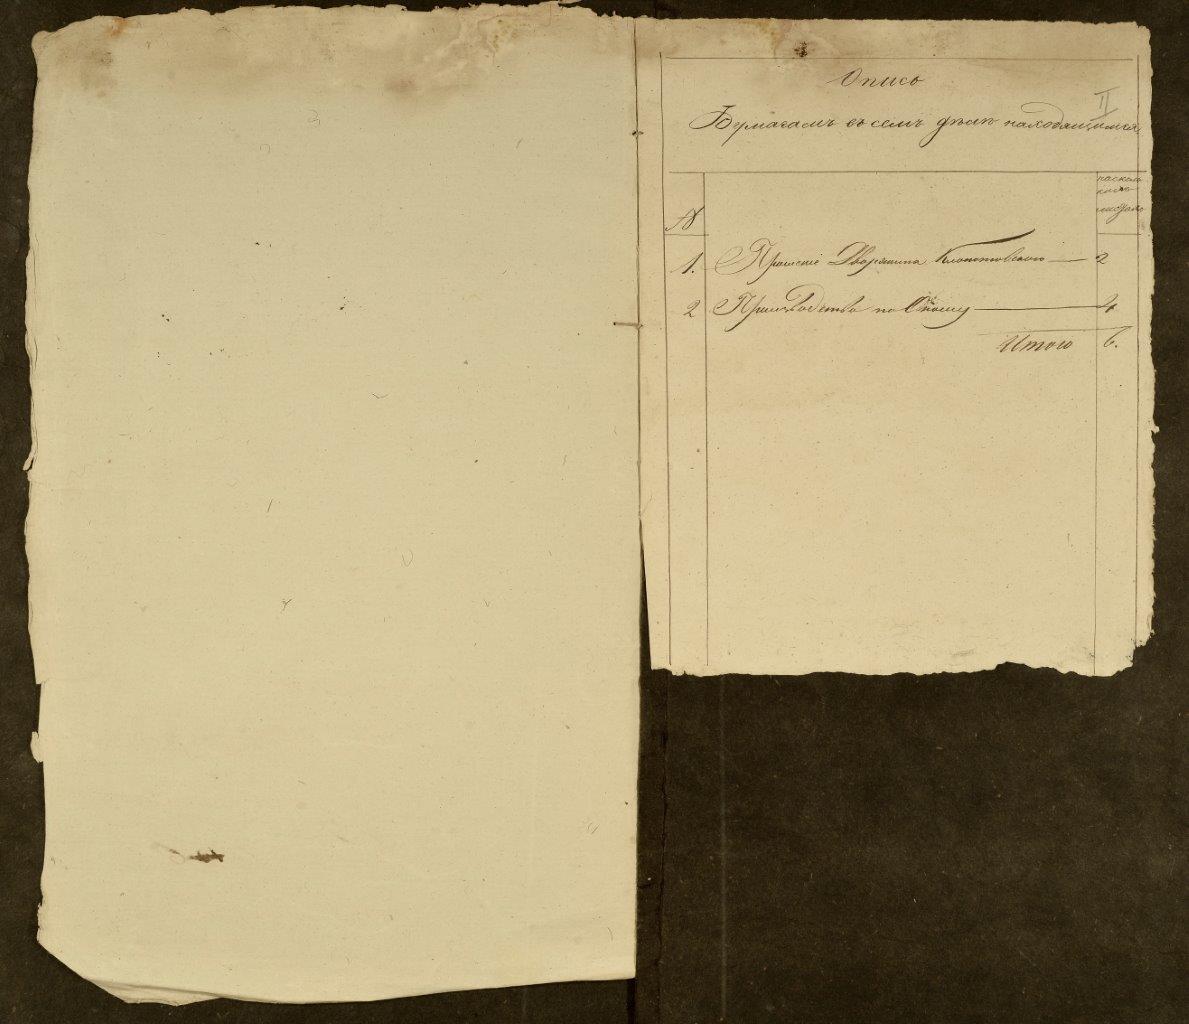 Опись
II
Бумагамъ въ семъ дѣлѣ находящимся
на сколь
кихъ
листахъ
№
1. Прошеніе Дворянина Клопотовскаго — 2
2 Производство по Оному — 4
Итого 6.